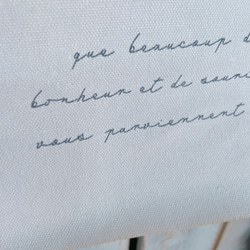 que beaucoup d
bonheur et de souri
vous parviennent